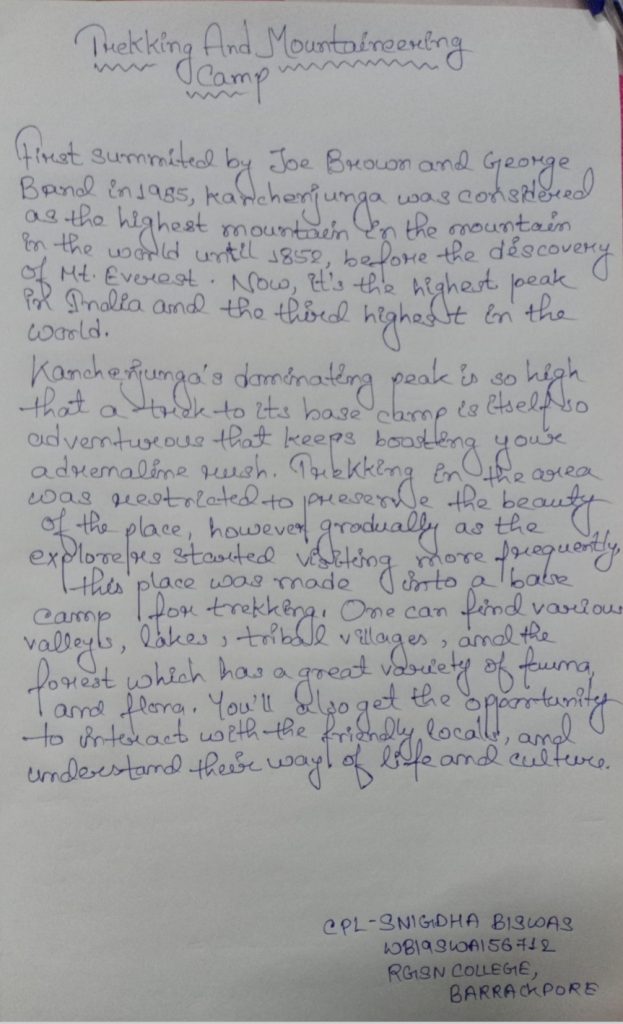 Trekking And Mountaineering
Camp
First summited by Joe Brown and George
Band in 1985, Kanchenjunga was considered
as the highest mountain in the mountain
in the world until 1852, before the discovery
of Mt. Everest. Now, it's the highest peak
in India and the third highest in the
world.
Kanchenjunga's dominating peak is so high
that a trek to its base camp is itself so
adventurous that keeps boosting your
adrenaline rush. Trekking in the area
was restricted to preserve the beauty
of the place, however gradually as the
explorers started visiting more frequently,
this place was made into a base
camp for trekking. One can find various
valleys, lakes, tribal villages, and the
forest which has a great variety of fauna,
and flora. You'll also get the opportunity
to interact with the friendly locals, and
understand their way of life and culture.
CPL-SNIGDHA BISWAS
WB19SWA156712
RGSN COLLEGE,
BARRACKPORE